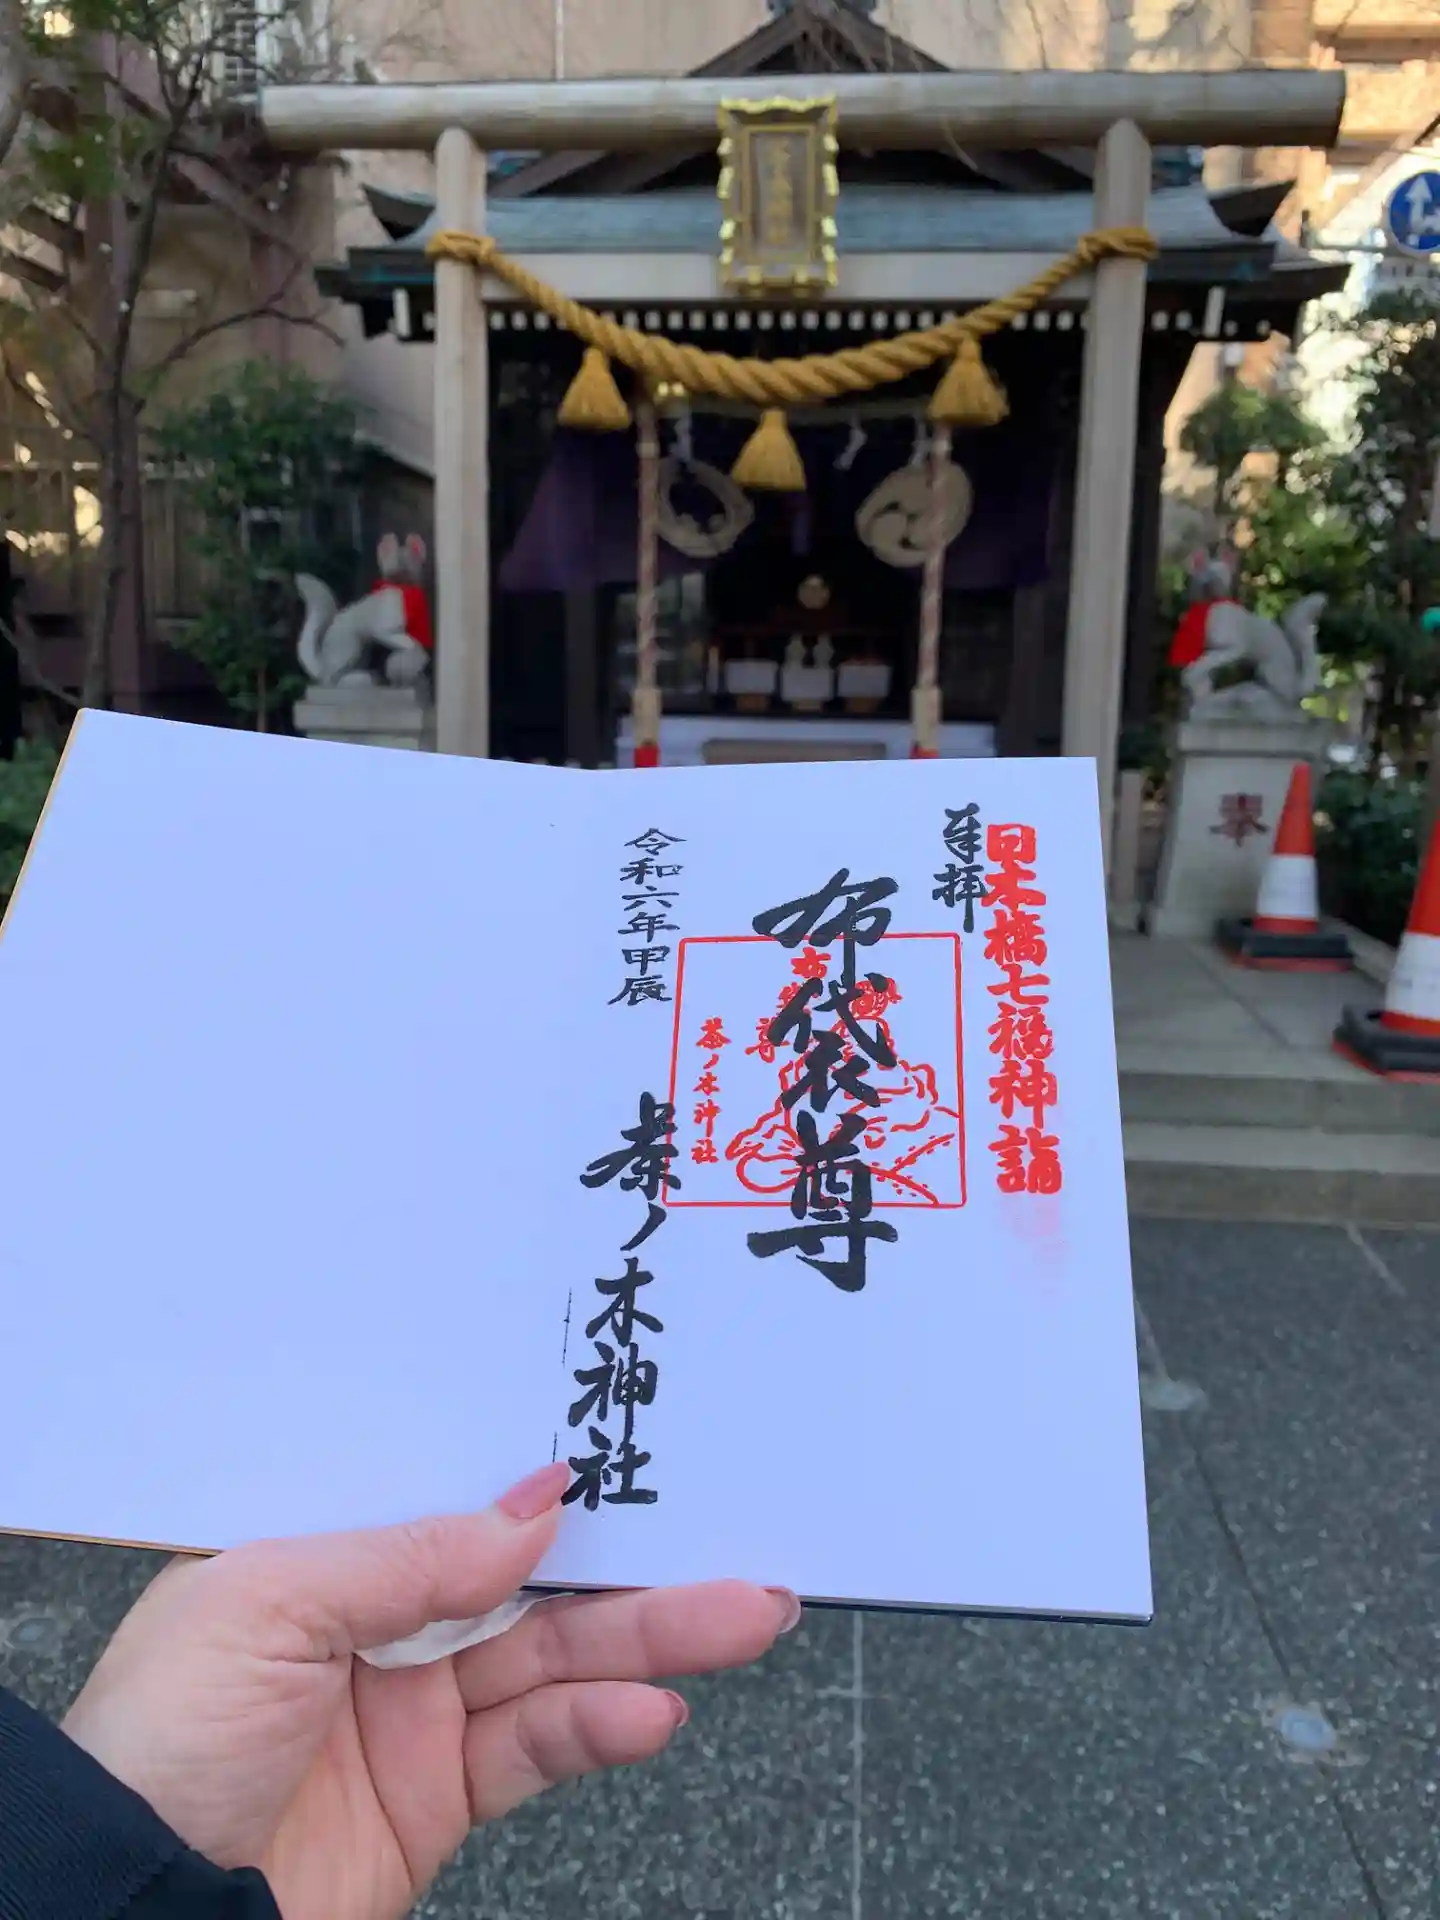 日本橋七福神詣
奉拝
布袋尊
布袋尊
茶ノ木神社
令和六年甲辰
茶ノ木神社
奉